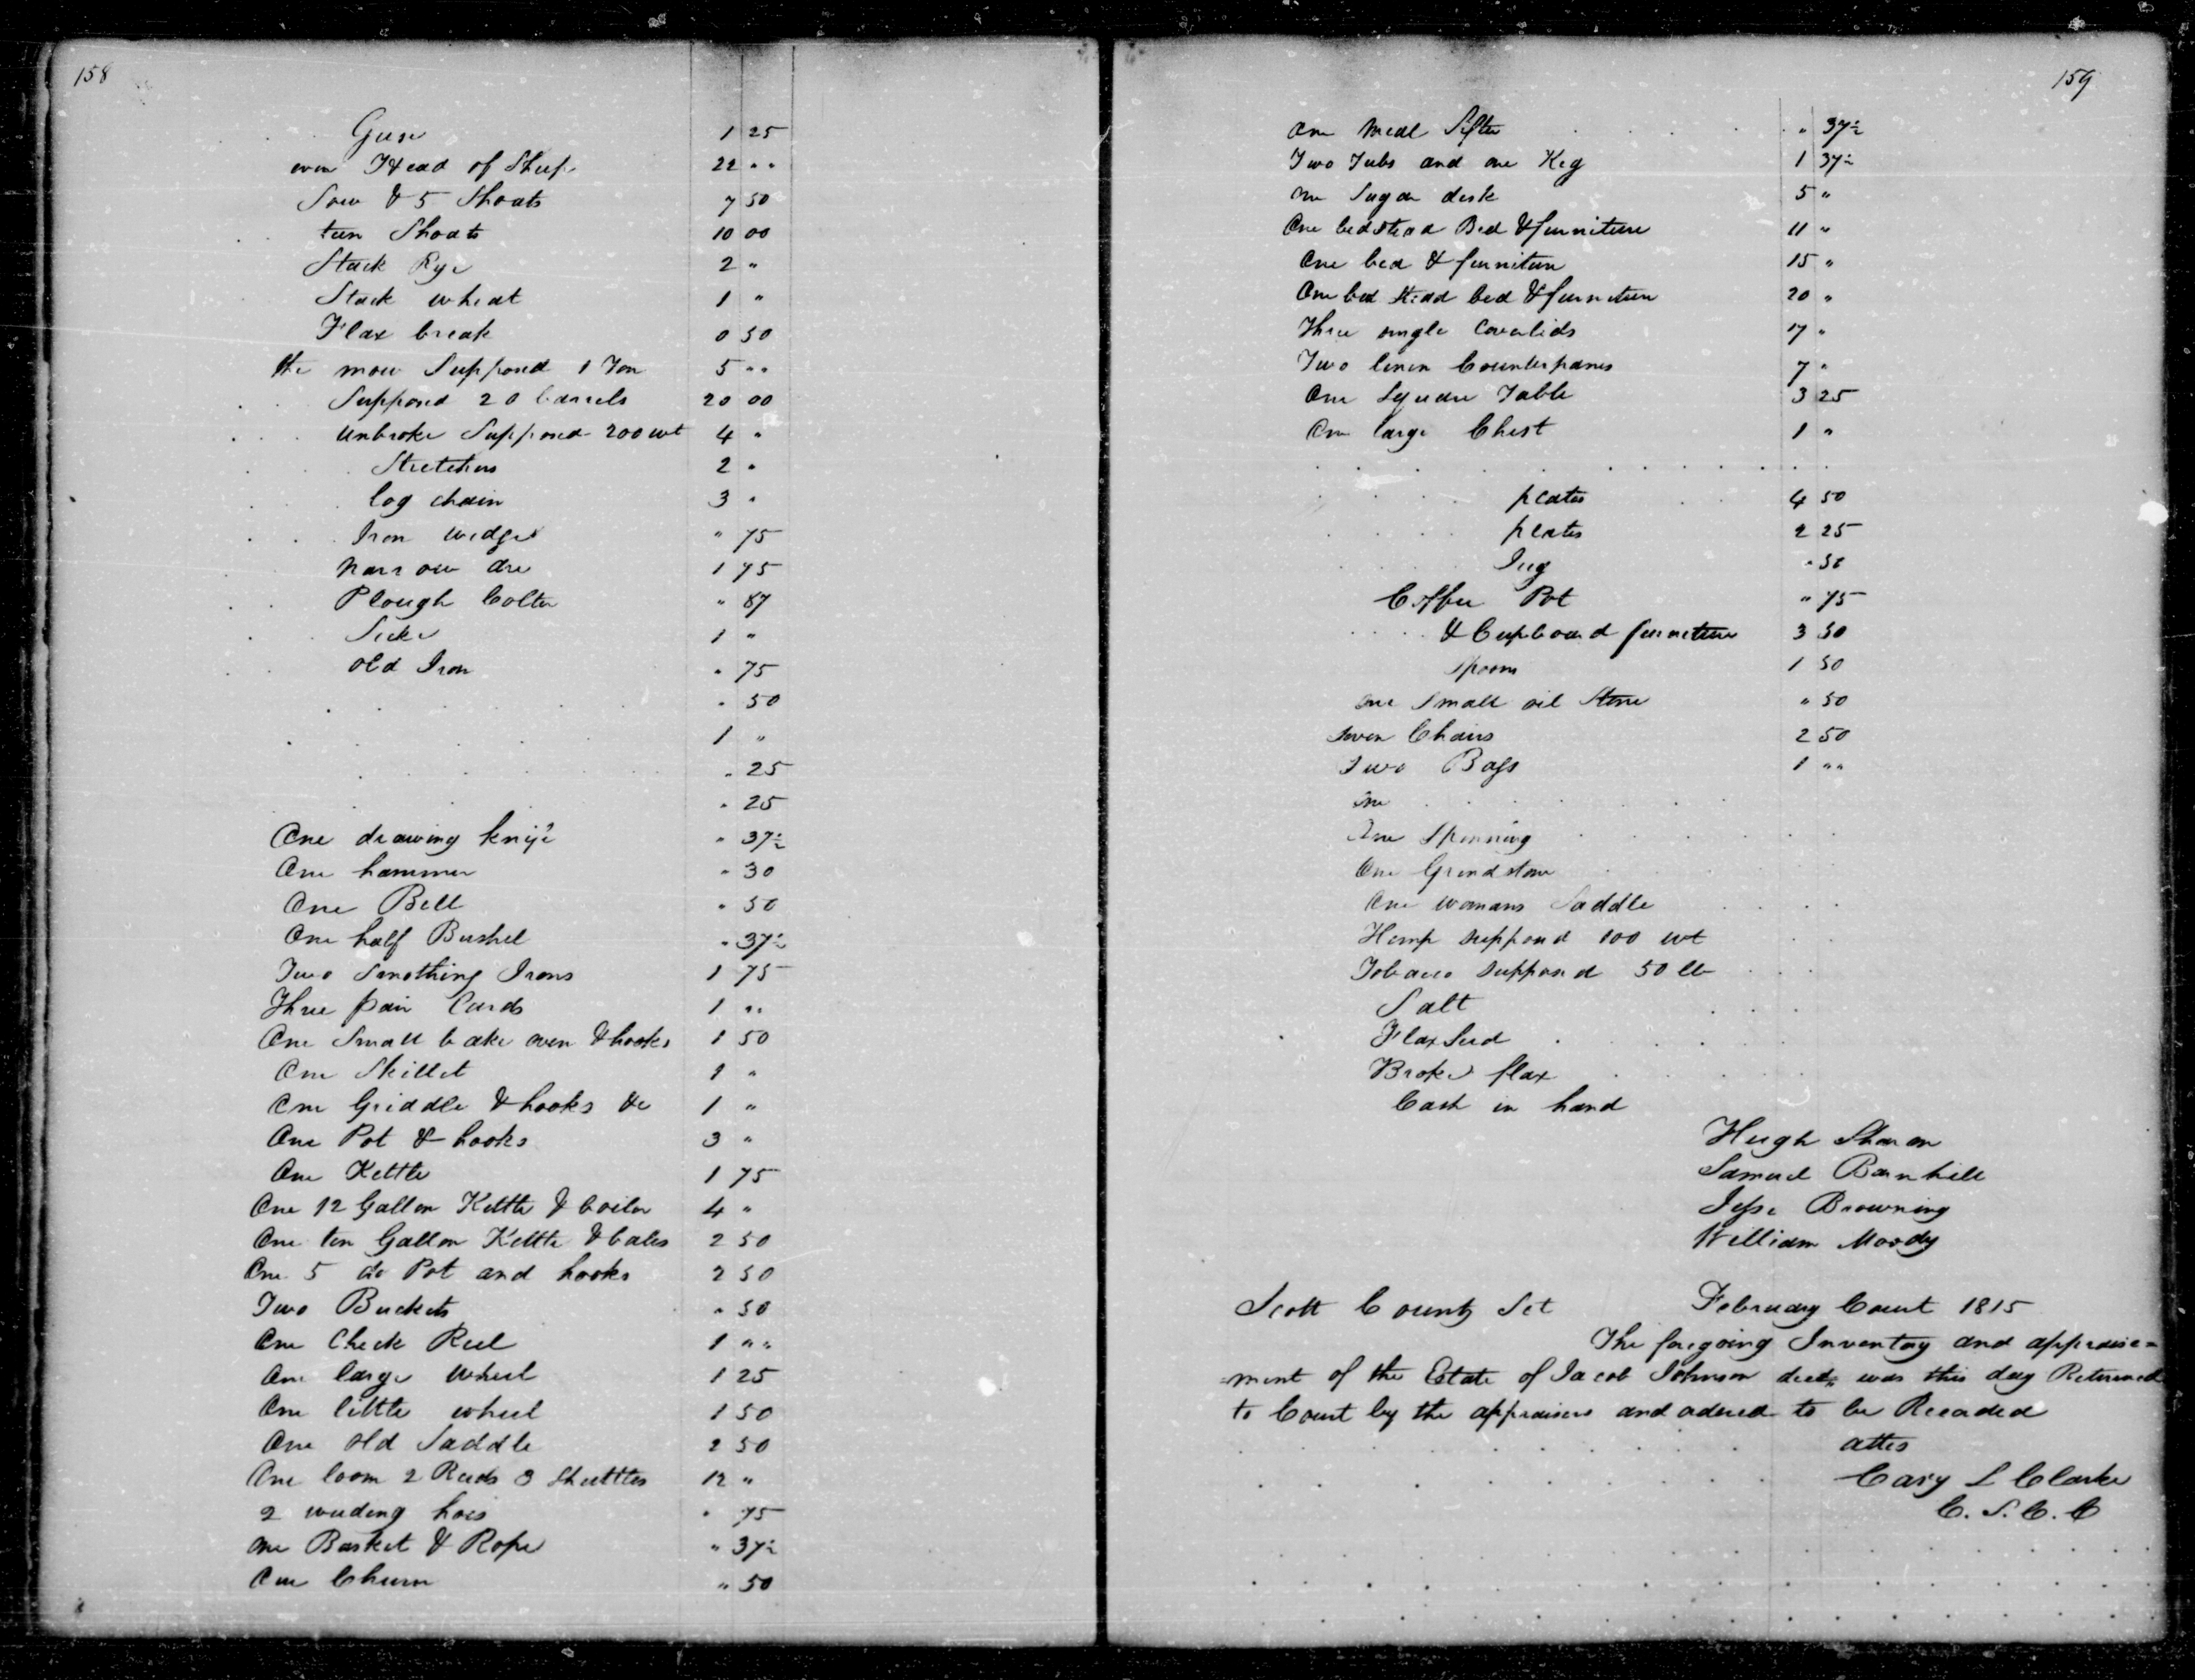 158
Geese 1 25
even Head of Sheep 22 " "
Sow & 5 Shoats 7 50
teen Shoats 10 00
Stack Rye 2 "
Stack wheat 1 "
Flax break 0 50
the mow Supposed 1 Ton 5 " "
Supposed 20 barrels 20 00
unbroke Supposed 200 wt 4 "
Stretchers 2 "
log chain 3 "
Iron wedges " 75
narrow axe 1 75
Plough Colter " 87
1 "
old Iron " 75
" 50
1 "
" 25
" 25
One drawing knife " 37½
One hammer " 30
One Bell " 50
One half Bushel " 37½
Two Smothing Irons 1 75
Three pair Cards 1 " "
One Small bake oven & hooks 1 50
One Skillet 1 "
One Griddle & hooks &c 1 "
One Pot & hooks 3 "
One Kettle 1 75
One 12 Gallon Kettle & boiler 4 "
One ten Gallon Kettle & bales 2 50
One 5 do Pot and hooks 2 50
Two Buckets " 50
One Check Reel 1 " "
One large wheel 1 25
One little wheel 1 50
One old Saddle 2 50
One loom 2 Reeds 3 Shuttles 12 "
2 weeding hoes " 75
One Basket & Rope " 37½
One Churn " 50
159
One meal Sifter " 37½
Two Tubs and one Keg 1 37½
One Sugar desk 5 "
One bedstead Bed & furniture 11 "
One bed & furniture 15 "
One bed stead bed & furniture 20 "
Three single Coverlids 17 "
Two linen Counterpanes 7 "
One Square Table 3 25
One large Chest 1 "
plates 4 50
plates 2 25
Jug " 50
Coffee Pot " 75
& Cupboard furniture 3 50
spoons 1 50
one Small oil Stone " 50
seven Chairs 2 50
Two Bags 1 " "
one
One Spinning
One Grindstone
One womans Saddle
Hemp supposed 100 wt
Tobacco supposed 50 lb
Salt
Flax Seed
Broke flax
Cash in hand
Hugh Sharon
Samuel Barnhill
Jesse Browning
William Moody
Scott County Sct February Court 1815
The foregoing Inventory and appraise=
=ment of the Estate of Jacob Johnson decd, was this day Returned
to Court by the appraisers and ordered to be Recorded
attes
Cary L Clarke
C. S. C. C